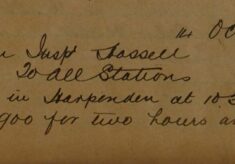 14 OC
n Inspr Hassell
To All Stations
in Harpenden at 10.5
900 for two hours a